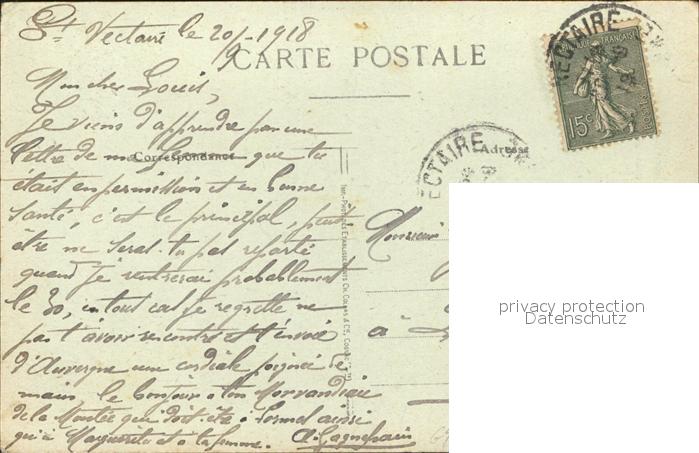 St Nectaire le 20/9 1918
CARTE POSTALE
NECTAIRE
RÉPUBLIQUE FRANÇAISE
15c
Mon cher Louis,
Je viens d'apprendre par une
lettre de que tu
Correspondance
Adresse
NECTAIRE
était en permission et en bonne
santé, c'est le principal, peut
être ne seras-tu pas reparti
quand je rentrerai probablement
le 30, en tout cas je regrette ne
pas t'avoir rencontré et t'envoie
d'Auvergne une cordiale poignée de
main, le bonjour à ton Morvandiau
de la qui doit être à aussi
qu'à Marguerite et à ta femme. A. Gagnepain
Monsieur
à
privacy protection
Datenschutz